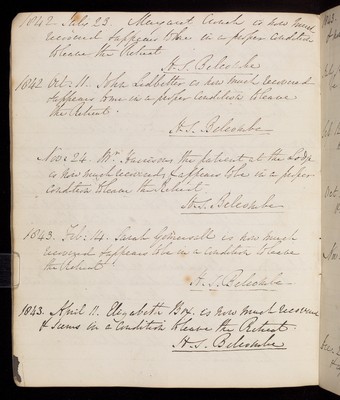 1842. Feb: 23 Margaret Coach is now much
recovered & appears to be in a proper condition
to leave the Retreat
H. S. Belcombe
1842 Oct: 11. John Ledbetter is now much recovered
& appears to me in a proper condition to leave
the Retreat.
H. S. Belcombe
Nov: 24. Mr. Harrison, the patient at the Lodge
is now much recovered, & appears to be in a proper
condition to leave the Retreat.
H. S. Belcombe
1843. Feb: 14. Sarah is now much
recovered & appears to be in a condition to leave
the Retreat
H. S. Belcombe
1843. April 11. Elizabeth Box. is now much recovered
& seems in a condition to leave the Retreat.
H. S. Belcombe